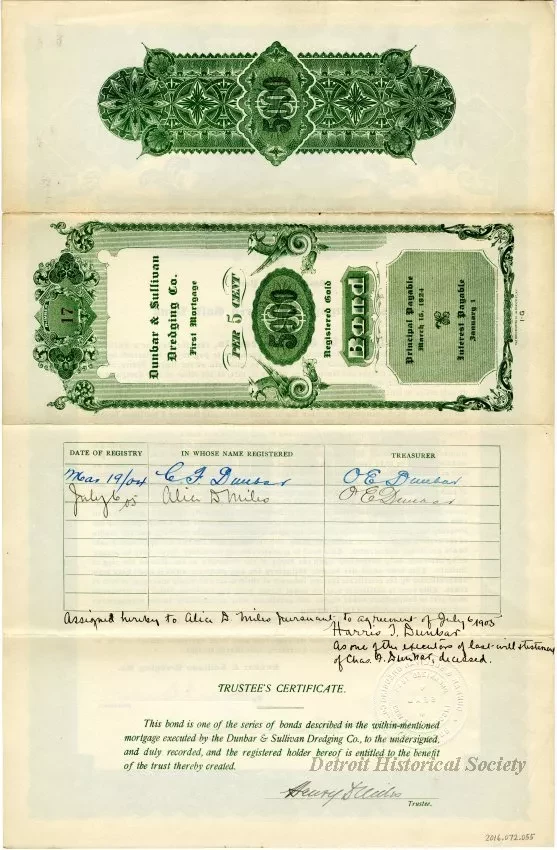 5000
17
Dunbar & Sullivan
Dredging Co.
First Mortgage
PER 5 CENT
5000
Registered Gold
Bond
Principal Payable
March 15, 1924
Interest Payable
January 1
DATE OF REGISTRY IN WHOSE NAME REGISTERED TREASURER
Mar 19/04 C. F. Dunbar O E Dunbar
July 6/05 Alice D Miles O E Dunbar
Assigned hereby to Alice D. Miles pursuant to agreement of July 6 1905
Harris T. Dunbar
As one of the executors of last will & testament
of Chas. F. Dunbar, deceased.
TRUSTEE'S CERTIFICATE.
This bond is one of the series of bonds described in the within-mentioned
mortgage executed by the Dunbar & Sullivan Dredging Co., to the undersigned,
and duly recorded, and the registered holder hereof is entitled to the benefit
of the trust thereby created.
Detroit Historical Society
Henry D Miles
Trustee.
2016.072.055